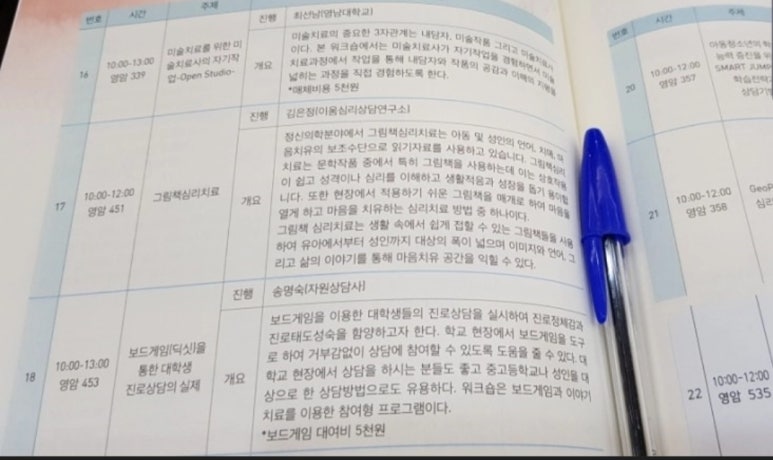 번호 시간 주제
16
10:00-13:00
영암 339
미술치료를 위한 미
술치료사의 자기작
업-Open Studio-
진행 최선남(영남대학교)
개요
미술치료의 중요한 3자관계는 내담자, 미술작품 그리고 미술치료사
이다. 본 워크숍에서는 미술치료사가 자기작업을 경험하면서 미술
치료과정에서 작업을 통해 내담자와 작품의 공감과 이해의 지평을
넓히는 과정을 직접 경험하도록 한다.
*매체비용 5천원
17
10:00-12:00
영암 451
그림책심리치료
진행 김은정(이움심리상담연구소)
개요
정신의학분야에서 그림책심리치료는 아동 및 성인의 언어, 치매, 마
음치유의 보조수단으로 읽기자료를 사용하고 있습니다. 그림책심리
치료는 문학작품 중에서 특히 그림책을 사용하는데 이는 상호작용
이 쉽고 성격이나 심리를 이해하고 생활적응과 성장을 돕기 용이합
니다. 또한 현장에서 적용하기 쉬운 그림책을 매개로 하여 마음을
열게 하고 마음을 치유하는 심리치료 방법 중 하나이다.
그림책 심리치료는 생활 속에서 쉽게 접할 수 있는 그림책들을 사용
하여 유아에서부터 성인까지 대상의 폭이 넓으며 이미지와 언어, 그
리고 삶의 이야기를 통해 마음치유 공간을 익힐 수 있다.
18
10:00-13:00
영암 453
보드게임(딕싯)을
통한 대학생
진로상담의 실제
진행 송명숙(자원상담사)
개요
보드게임을 이용한 대학생들의 진로상담을 실시하여 진로정체감과
진로태도성숙을 함양하고자 한다. 학교 현장에서 보드게임을 도구
로 하여 거부감없이 상담에 참여할 수 있도록 도움을 줄 수 있다. 대
학교 현장에서 상담을 하시는 분들도 좋고 중고등학교나 성인을 대
상으로 한 상담방법으로도 유용하다. 워크숍은 보드게임과 이야기
치료를 이용한 참여형 프로그램이다.
*보드게임 대여비 5천원
번호 시간 주제
20
10:00-12:00
영암 357
아동청소년의 학
능력 증진을 위
SMART JUMP
학습전략
상담기법
21
10:00-12:00
영암 358
GeoP
심리
22
10:00-12:00
영암 535